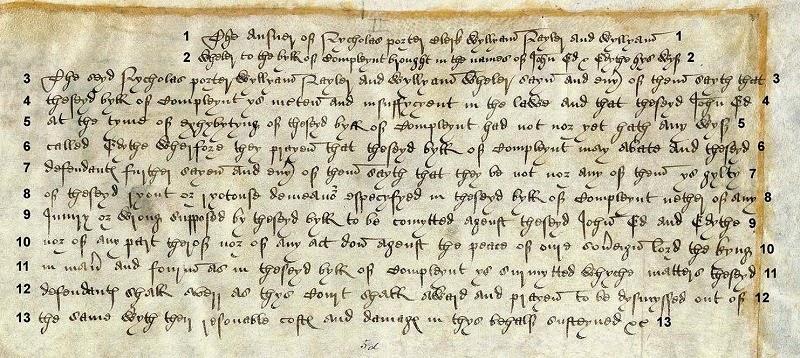 1 The Answer of Nycholas porter clerk Wyllyam Nayler and Wyllyam 1
2 Wheler to the byll of Compleynt brought in the names of John Ed & Edythe hys wyf 2
3 The seyd Nycholas porter Wyllyam Nayler and Wyllyam Wheler sayn and eny of them sayth that 3
4 theseyd byll of Compleynt ys meten and insuffycyent in the lawe and that theseyd John Ed 4
5 at the tyme of exhybytyng of theseyd byll of Compleynt had not nor yet hath any wyf 5
6 called Edythe wherfore they prayen that theseyd byll of Compleynt may abate and theseyd 6
7 defendantes further sayen and eny of them sayth that they be not nor any of them ys gylty 7
8 of theseyd ryout or ryotouse demeanor especyfyed in theseyd byll of Compleynt nether of any 8
9 Iniury or wrong supposed by theseyd byll to be comytted agenst theseyd John Ed and Edythe 9
10 nor of any part therof nor of any act don agenst the peace of oure soueraign lord the kyng 10
11 in maner and fourme as in theseyd byll of Compleynt ys surmytted whyche matters theseyd 11
12 defendantes shall averr as thys Court shall award and prayen to be dysmyssed out of 12
13 the same wyth their resonable costes and damages in thys behalf susteyned &c 13